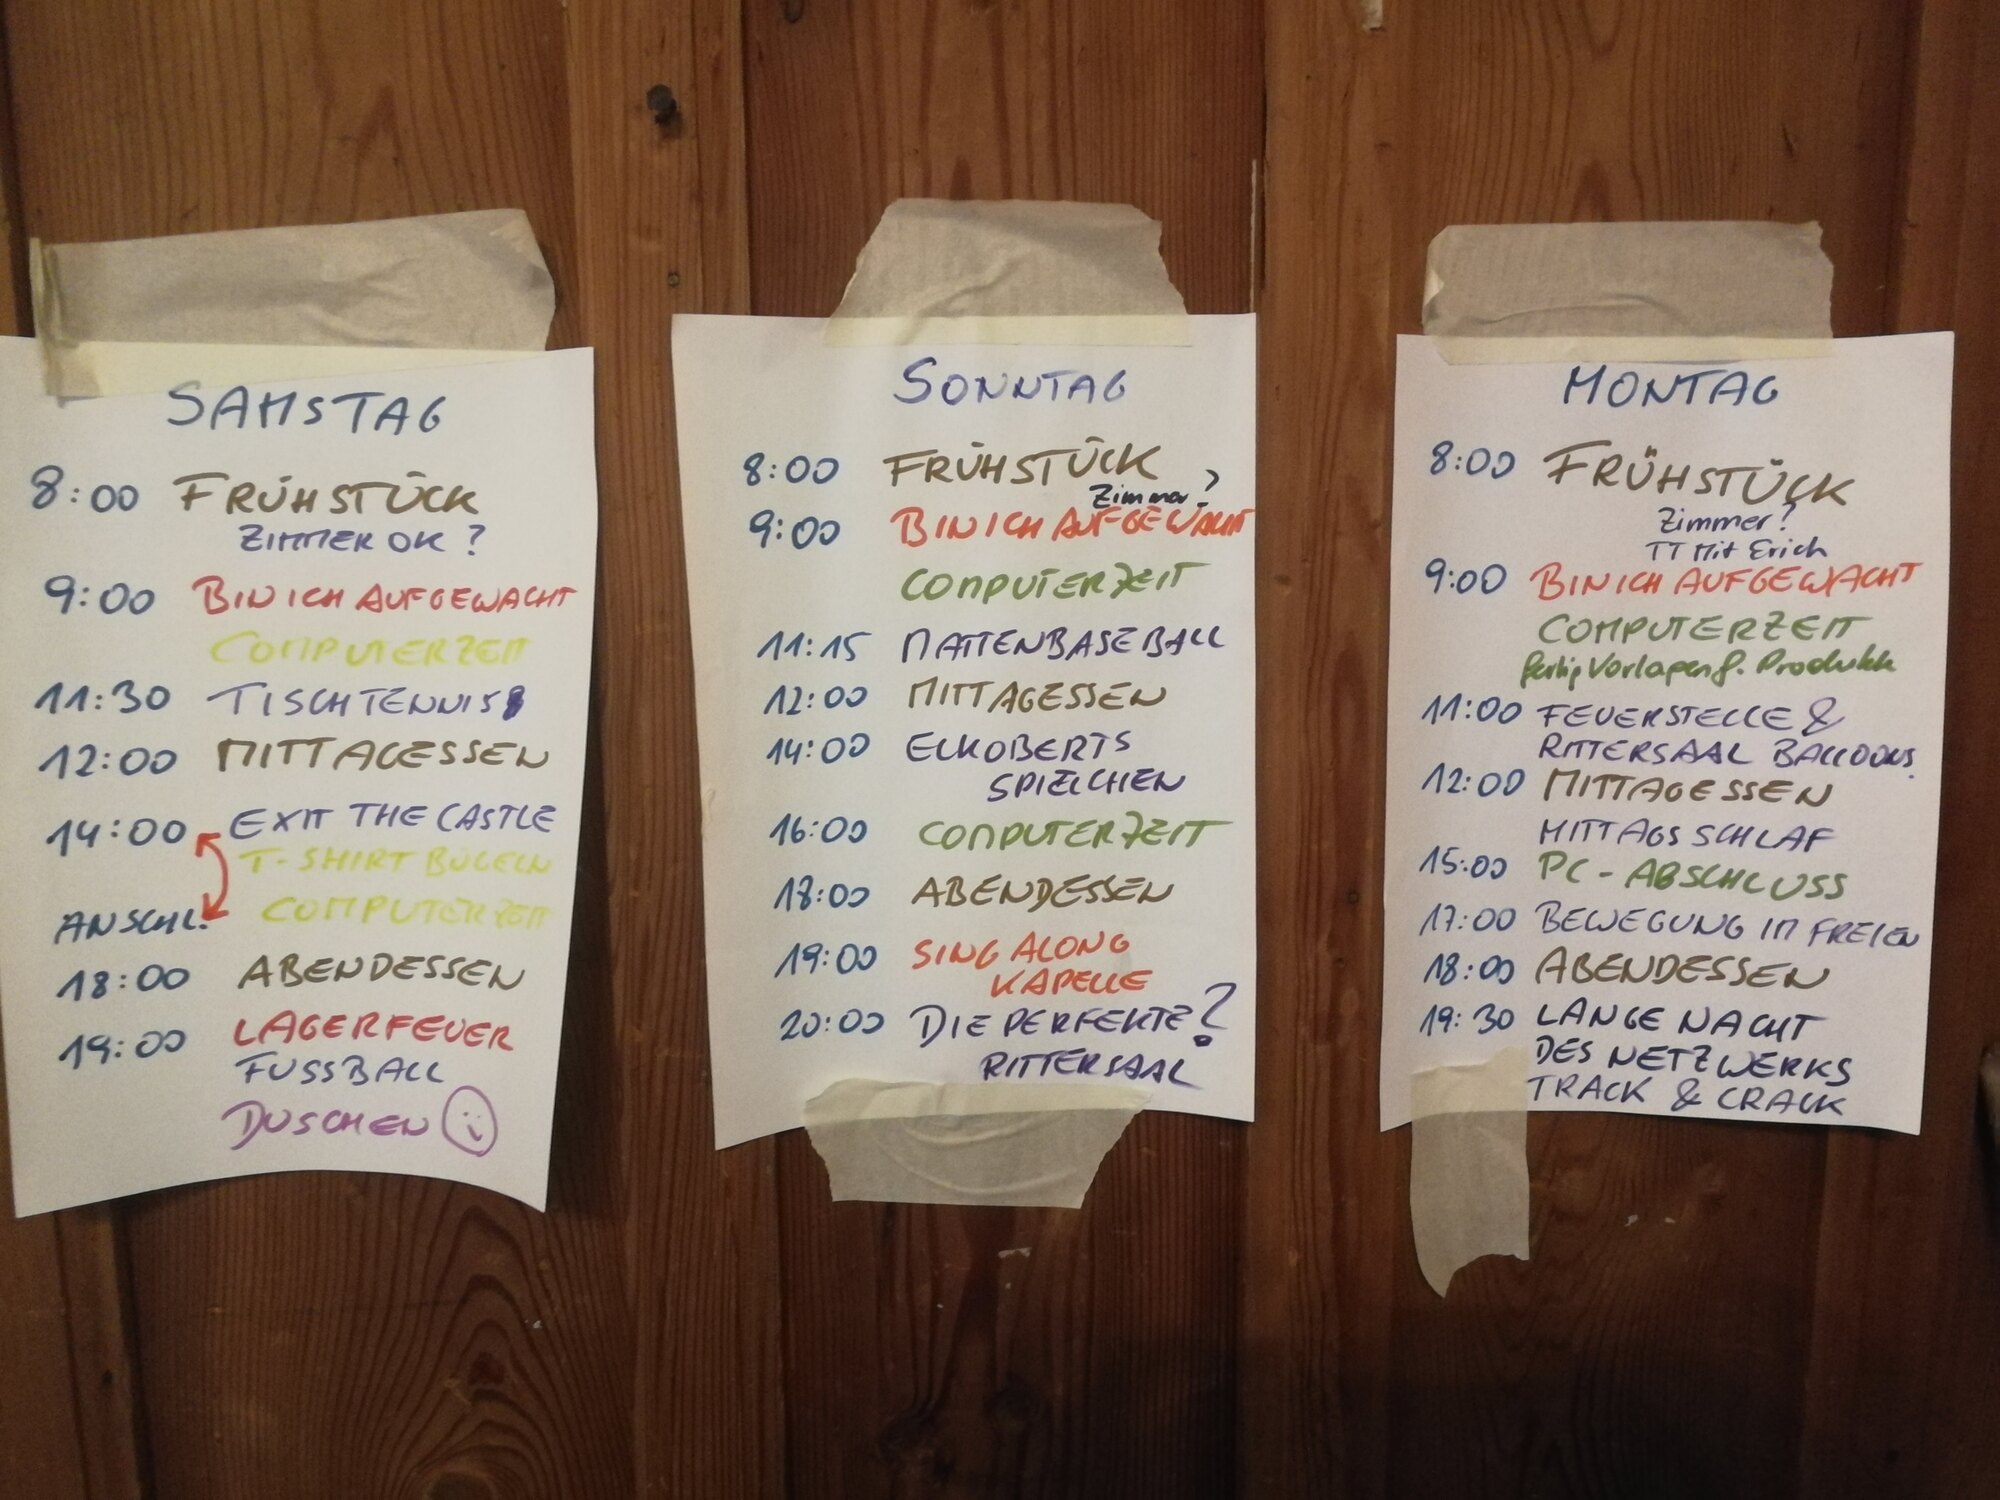 SAMSTAG
8:00 FRÜHSTÜCK
ZIMMER OK?
9:00 BIN ICH AUFGEWACHT
COMPUTERZEIT
11:30 TISCHTENNIS
12:00 MITTAGESSEN
14:00 EXIT THE CASTLE
T-SHIRT BÜGELN
ANSCHL. COMPUTERZEIT
18:00 ABENDESSEN
19:00 LAGERFEUER
FUSSBALL
DUSCHEN
SONNTAG
8:00 FRÜHSTÜCK
Zimmer?
9:00 BIN ICH AUFGEWACHT
COMPUTERZEIT
11:15 MATTENBASEBALL
12:00 MITTAGESSEN
14:00 ECKOBERTS
SPIELCHEN
16:00 COMPUTERZEIT
18:00 ABENDESSEN
19:00 SING ALONG
KAPELLE
20:00 DIE PERFEKTE?
RITTERSAAL
MONTAG
8:00 FRÜHSTÜCK
Zimmer?
TT Mit Erich
9:00 BIN ICH AUFGEWACHT
COMPUTERZEIT
fertig Vorlagen f. Produkte
11:00 FEUERSTELLE &
RITTERSAAL BALLOONS.
12:00 MITTAGESSEN
MITTAGSSCHLAF
15:00 PC-ABSCHLUSS
17:00 BEWEGUNG IM FREIEN
18:00 ABENDESSEN
19:30 LANGE NACHT
DES NETZWERKS
TRACK & CRACK